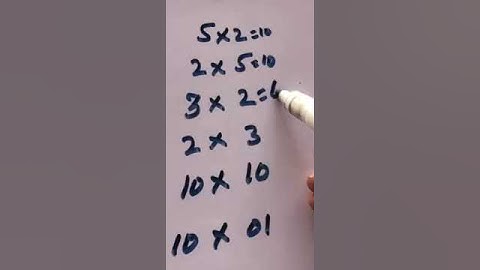 5×2=10
2 × 5=10
3 × 2=6
2 × 3
10 × 10
10 × 01